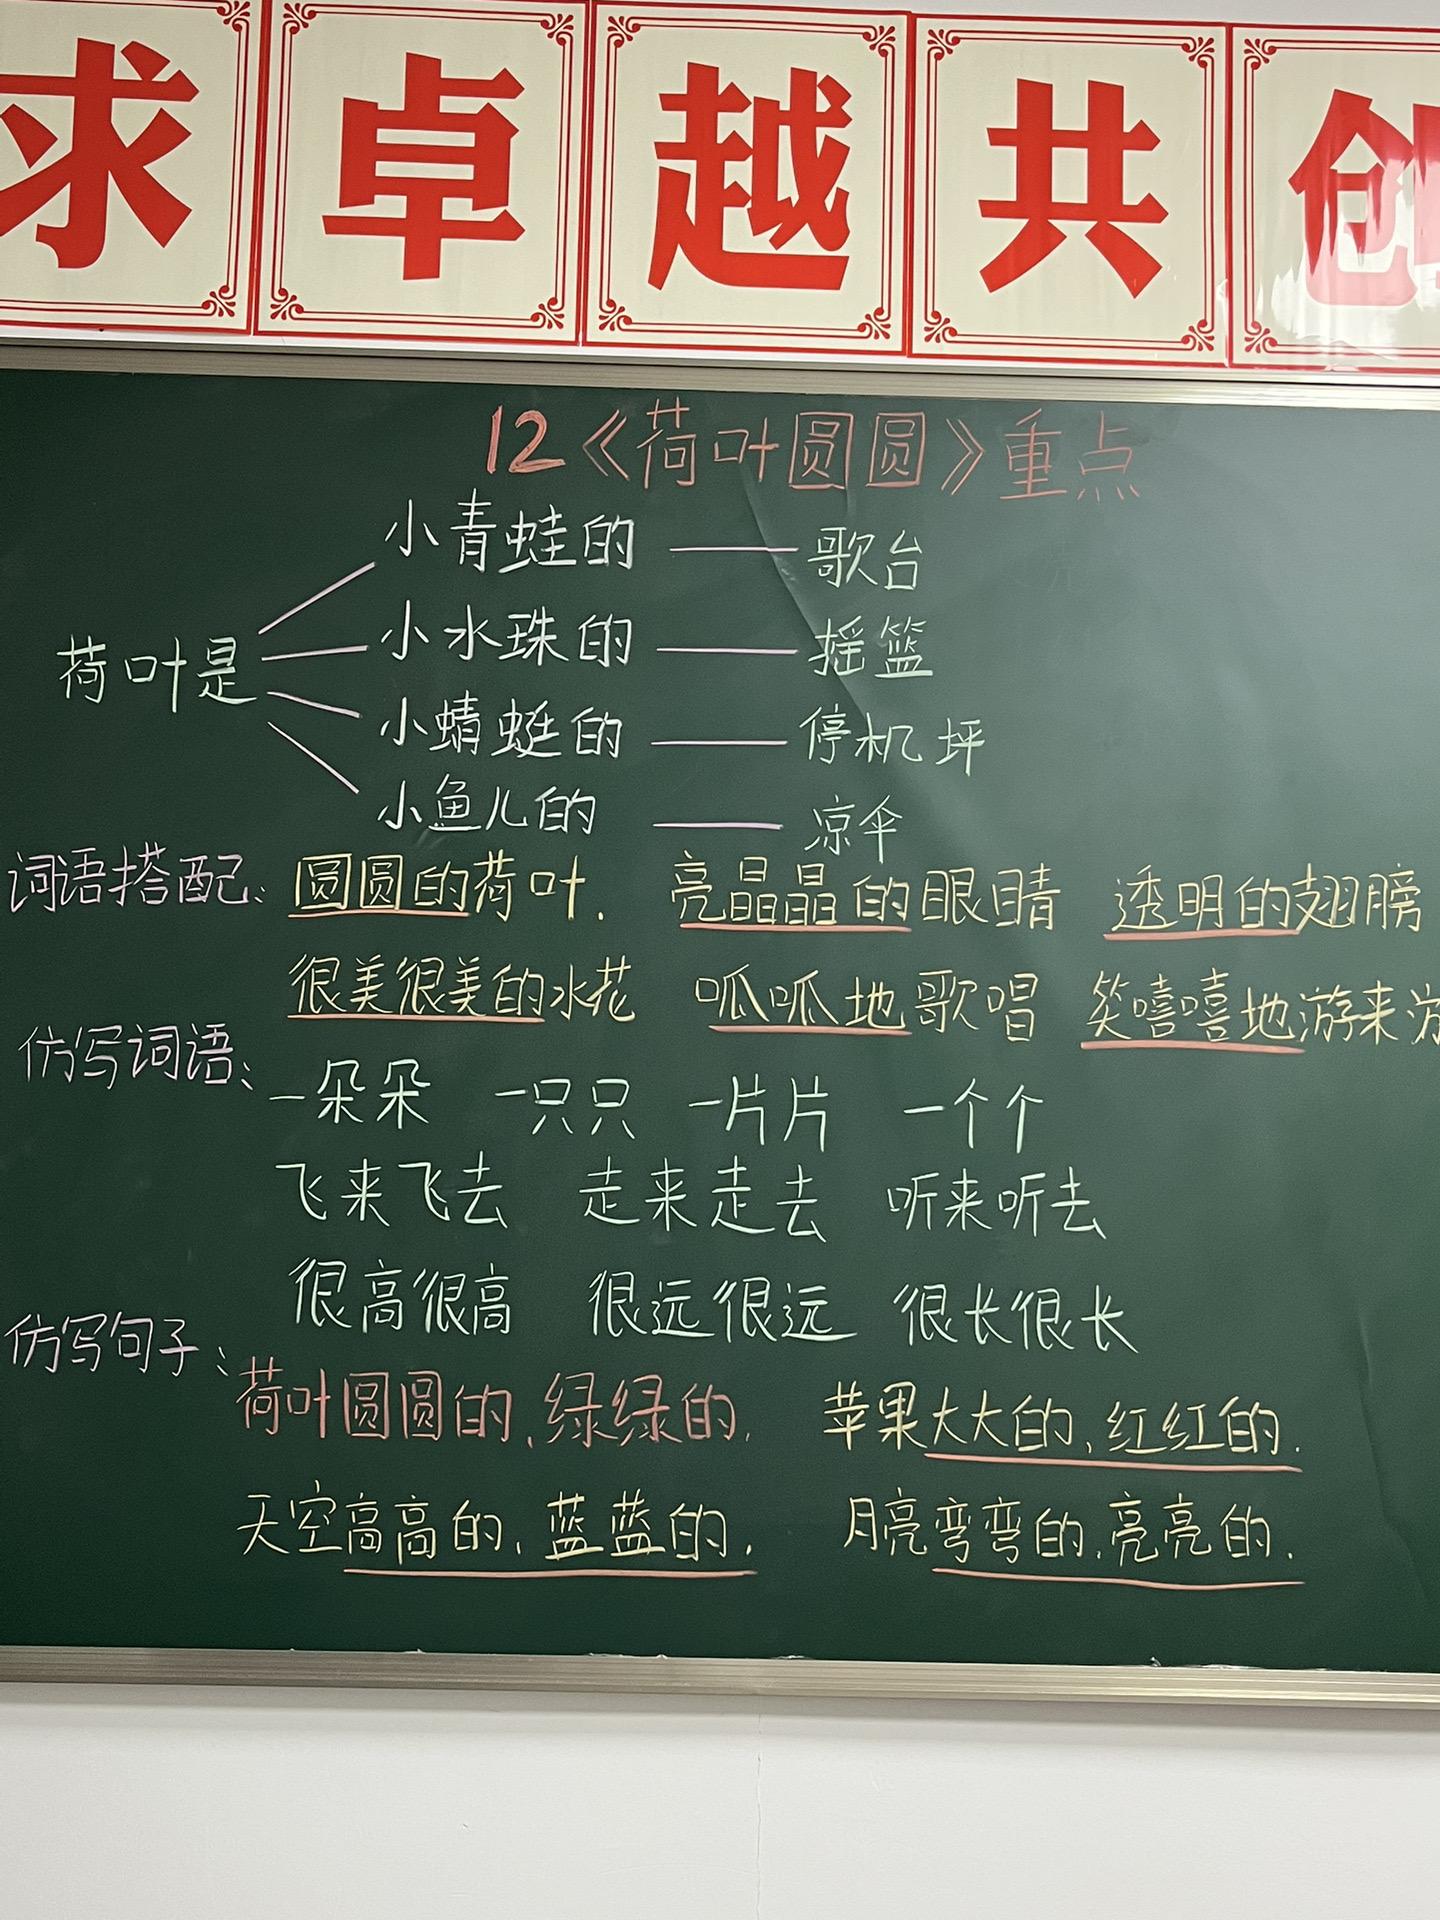 求卓越共创
12《荷叶圆圆》重点
小青蛙的——歌台
荷叶是 小水珠的——摇篮
小蜻蜓的——停机坪
小鱼儿的——凉伞
词语搭配:圆圆的荷叶. 亮晶晶的眼睛 透明的翅膀
很美很美的水花 呱呱地歌唱 笑嘻嘻地游来游
仿写词语:一朵朵 一只只 一片片 一个个
飞来飞去 走来走去 听来听去
很高很高 很远很远 很长很长
仿写句子:荷叶圆圆的,绿绿的. 苹果大大的,红红的.
天空高高的,蓝蓝的. 月亮弯弯的,亮亮的.